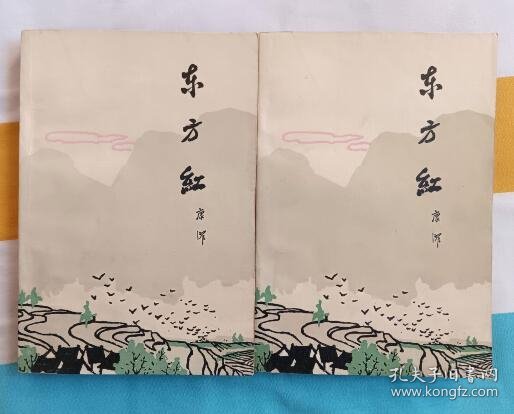 东方红
康濯
东方红
康濯
孔夫子旧书网
www.kongfz.com